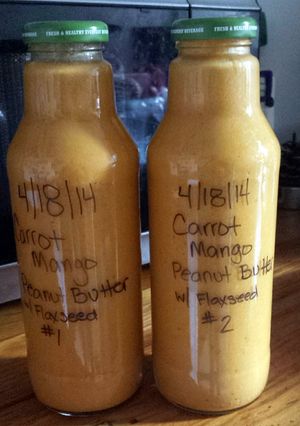 FRESH & HEALTHY EVERYDAY BEVERAGE
4/18/14
Carrot
Mango
Peanut Butter
w/ Flaxseed
#1
BEVERAGE
FRESH & HEALTHY EVE
4/18/14
Carrot
Mango
Peanut Butter
w/ Flaxseed
#2